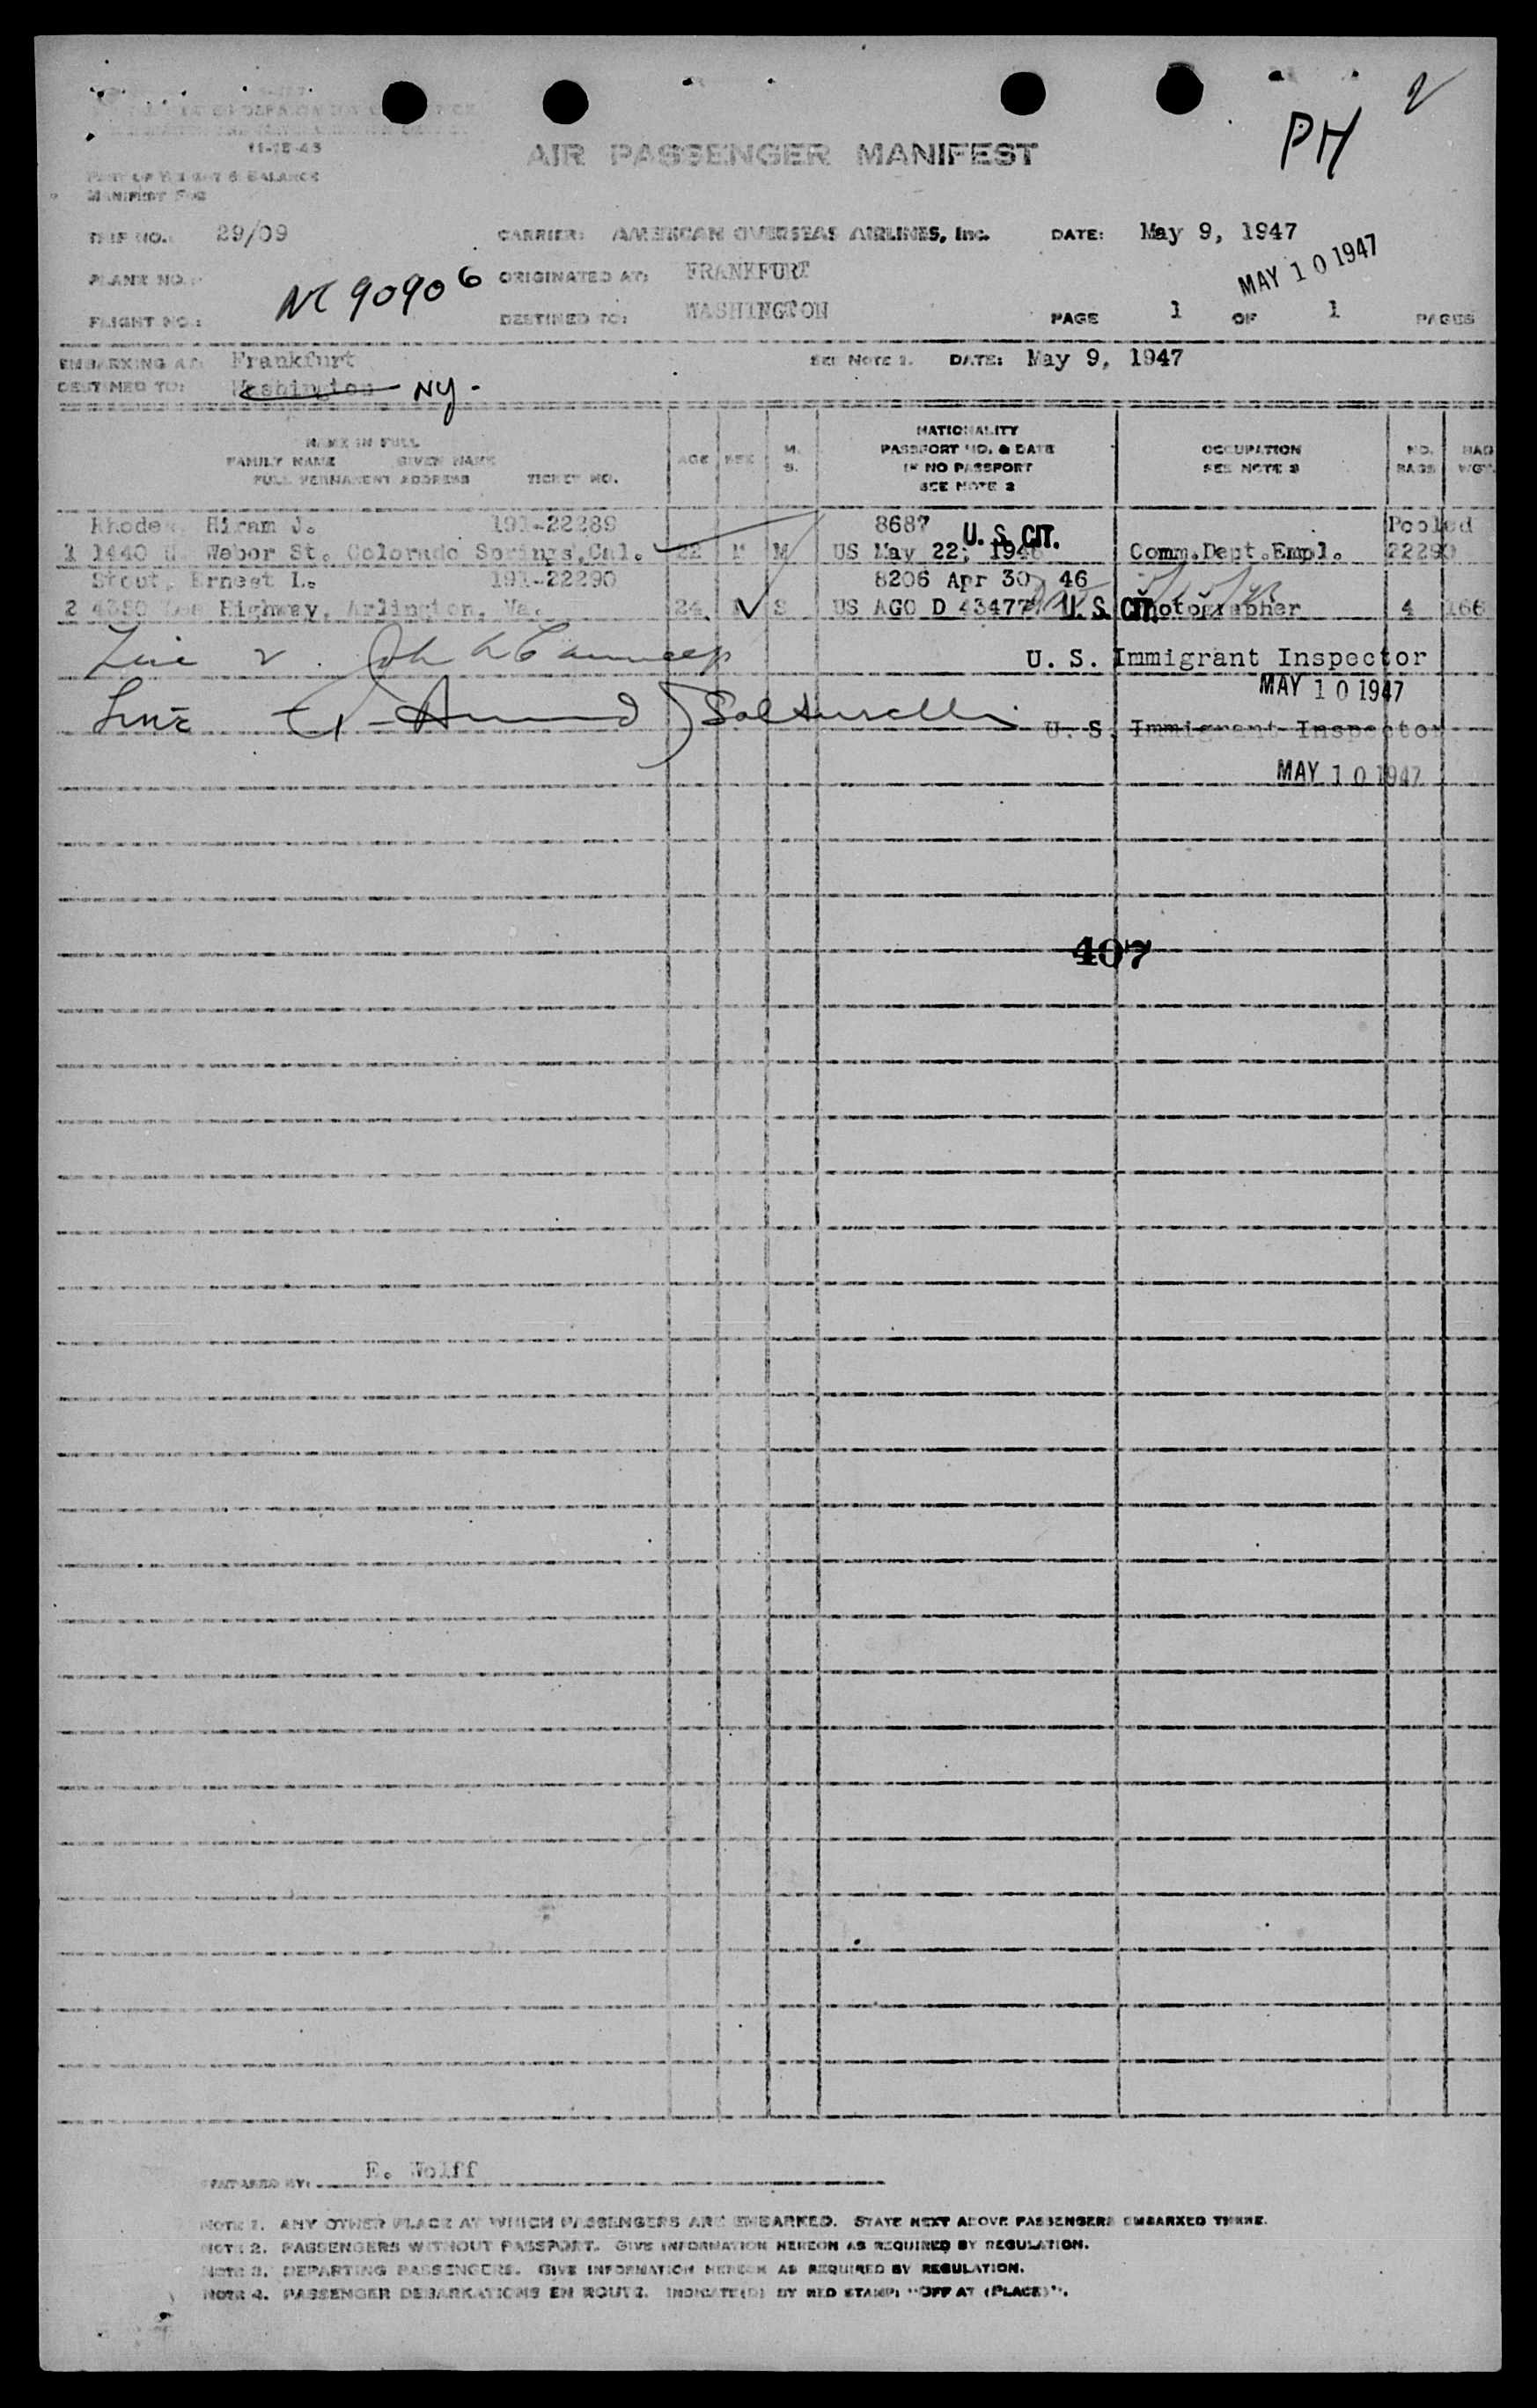 2
PH
11-18-43
AIR PASSENGER MANIFEST
PART OF WEIGHT & BALANCE
MANIFEST FOR
TRIP NO.: 29/09 CARRIER: AMERICAN OVERSEAS AIRLINES, Inc. DATE: May 9, 1947
MAY 10 1947
PLANE NO.: NC 90906 ORIGINATED AT: FRANKFURT
FLIGHT NO.: DESTINED TO: WASHINGTON PAGE 1 OF 1 PAGES
EMBARKING AT: Frankfurt SEE NOTE 1. DATE: May 9, 1947
DESTINED TO: Washington NY.
NAME IN FULL
FAMILY NAME GIVEN NAME
FULL PERMANENT ADDRESS TICKET NO. AGE SEX M. S. NATIONALITY PASSPORT NO. & DATE IF NO PASSPORT SEE NOTE 2 OCCUPATION SEE NOTE 3 NO. BAGS BAG WGT.
Rhodes, Hiram J. 191-22289 8687 U. S. CIT. Pooled
1 1440 Weber St. Colorado Springs, Cal. 22 M M US May 22, 1946 Comm.Dept.Empl. 22290
Stout, Ernest L. 191-22290 8206 Apr 30, 46
2 4350 Lee Highway, Arlington, Va. 24 M S US AGO D 43477 U. S. CIT. Photographer 4 166
Line 2 John U. S. Immigrant Inspector
MAY 10 1947
Line 1 U. S. Immigrant Inspector
MAY 10 1947
407
PREPARED BY: E. Wolff
NOTE 1. ANY OTHER PLACE AT WHICH PASSENGERS ARE EMBARKED. STATE NEXT ABOVE PASSENGERS EMBARKED THERE.
NOTE 2. PASSENGERS WITHOUT PASSPORT. GIVE INFORMATION HEREON AS REQUIRED BY REGULATION.
NOTE 3. DEPARTING PASSENGERS. GIVE INFORMATION HEREON AS REQUIRED BY REGULATION.
NOTE 4. PASSENGER DEBARKATIONS EN ROUTE. INDICATE(D) BY RED STAMP: "OFF AT (PLACE)".